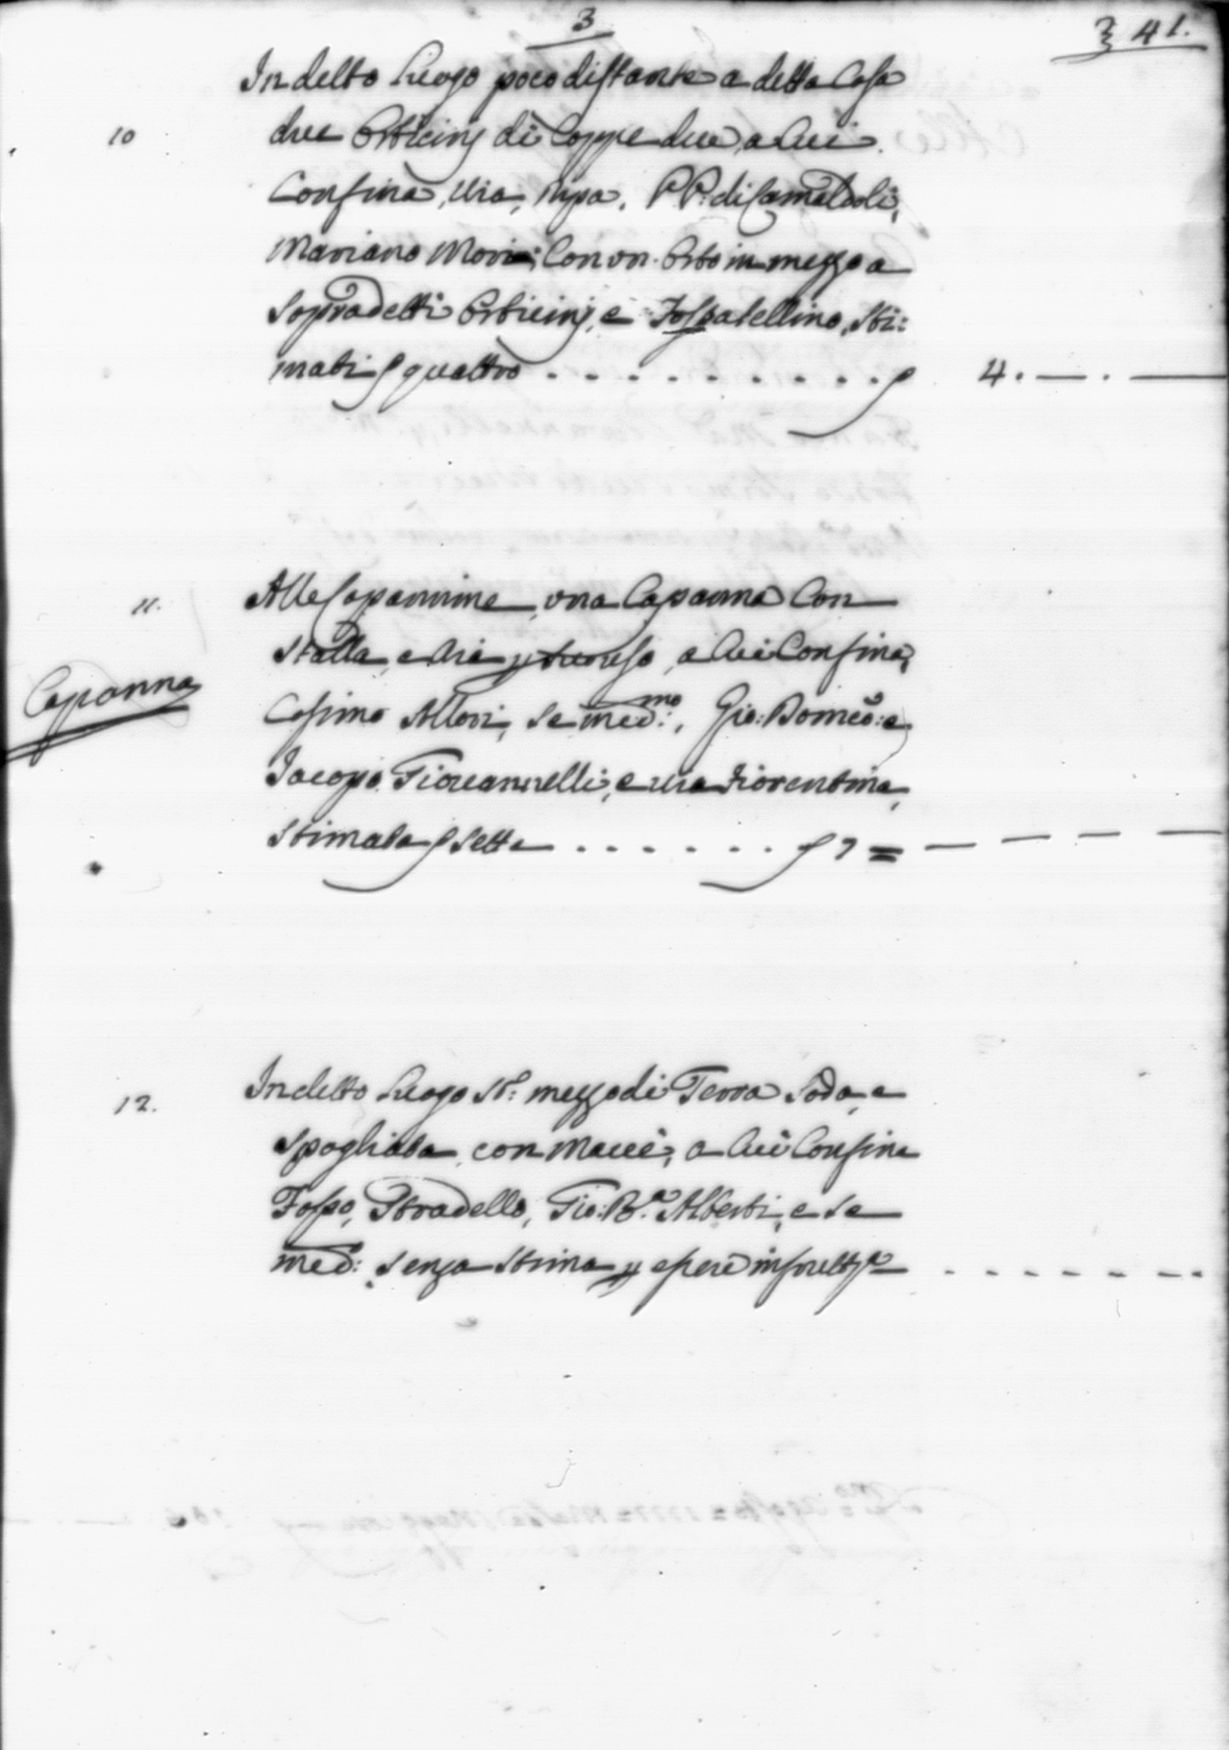 3
341.
In detto Luogo poco distante a detta Casa
10
due Orticinj di Coppe due, a Cui
Confina, Via, Ripa, PP. di Camaldoli,
Mariano Mori; Con un Orto in mezzo a
sopradetti Orticinj, e Fossatellino, Sti:
mati quattro . . . . . . . . . . . 4. — . —
11.
Alle Capannine, una Capanna Con
Stalla, e Aia, a Cui Confina,
Capanna
Cosimo Allori, Se med:mo, Gio: Domco: e
Iacopo Giovannelli, e via Fiorentina,
Stimata Sette . . . . . . 7 = — — — —
12.
In detto Luogo St: mezzo di Terra Soda, e
spogliata con Macie, a Cui Confina
Fosso, Stradello, Gio: Ba: Alberti, e se
med: senza Stima . . . . . . .